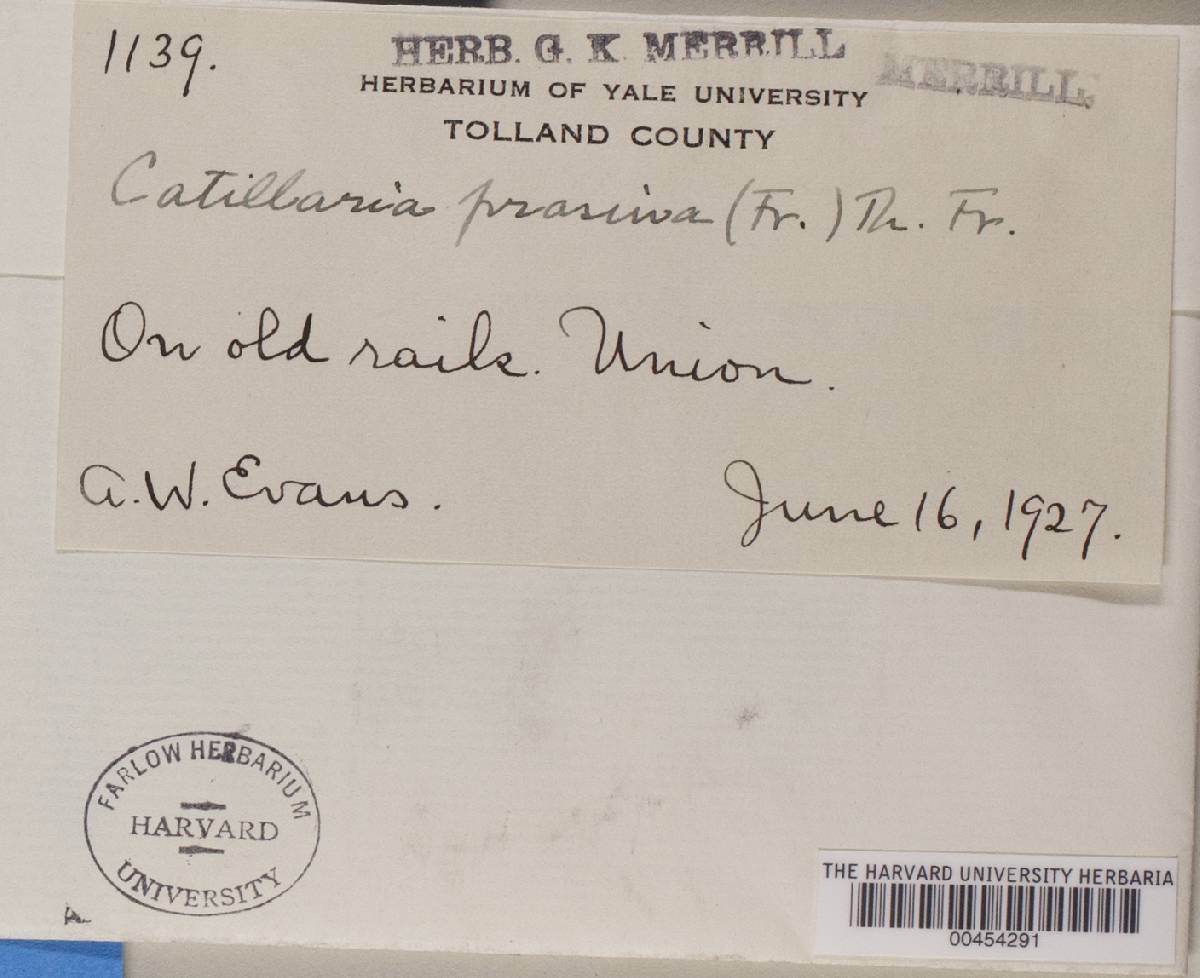 1139.
HERB. G. K. MERRILL
MERRILL.
HERBARIUM OF YALE UNIVERSITY
TOLLAND COUNTY
Catillaria prasina (Fr.) Th. Fr.
On old rails. Union.
A. W. Evans.
June 16, 1927.
FARLOW HERBARIUM
HARVARD
UNIVERSITY
THE HARVARD UNIVERSITY HERBARIA
00454291